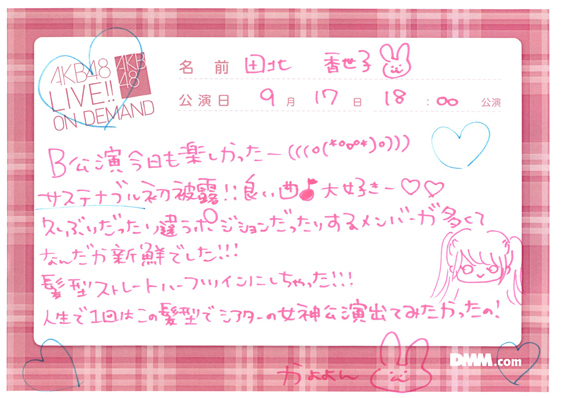 AKB48
LIVE!!
ON DEMAND
AKB
48
名 前 田北 香世子
公演日 9月 17日 18:00 公演
B公演今日も楽しかったー(((o(*°▽°*)o)))
サステナブル初披露!!良い曲♪大好きー♡♡
久しぶりだったり違うポジションだったりするメンバーが多くて
なんだか新鮮でした!!!
髪型ストレートハーフツインにしちゃった!!!
人生で1回はこの髪型でシアターの女神公演出てみたかったの!
かよよん
DMM.com